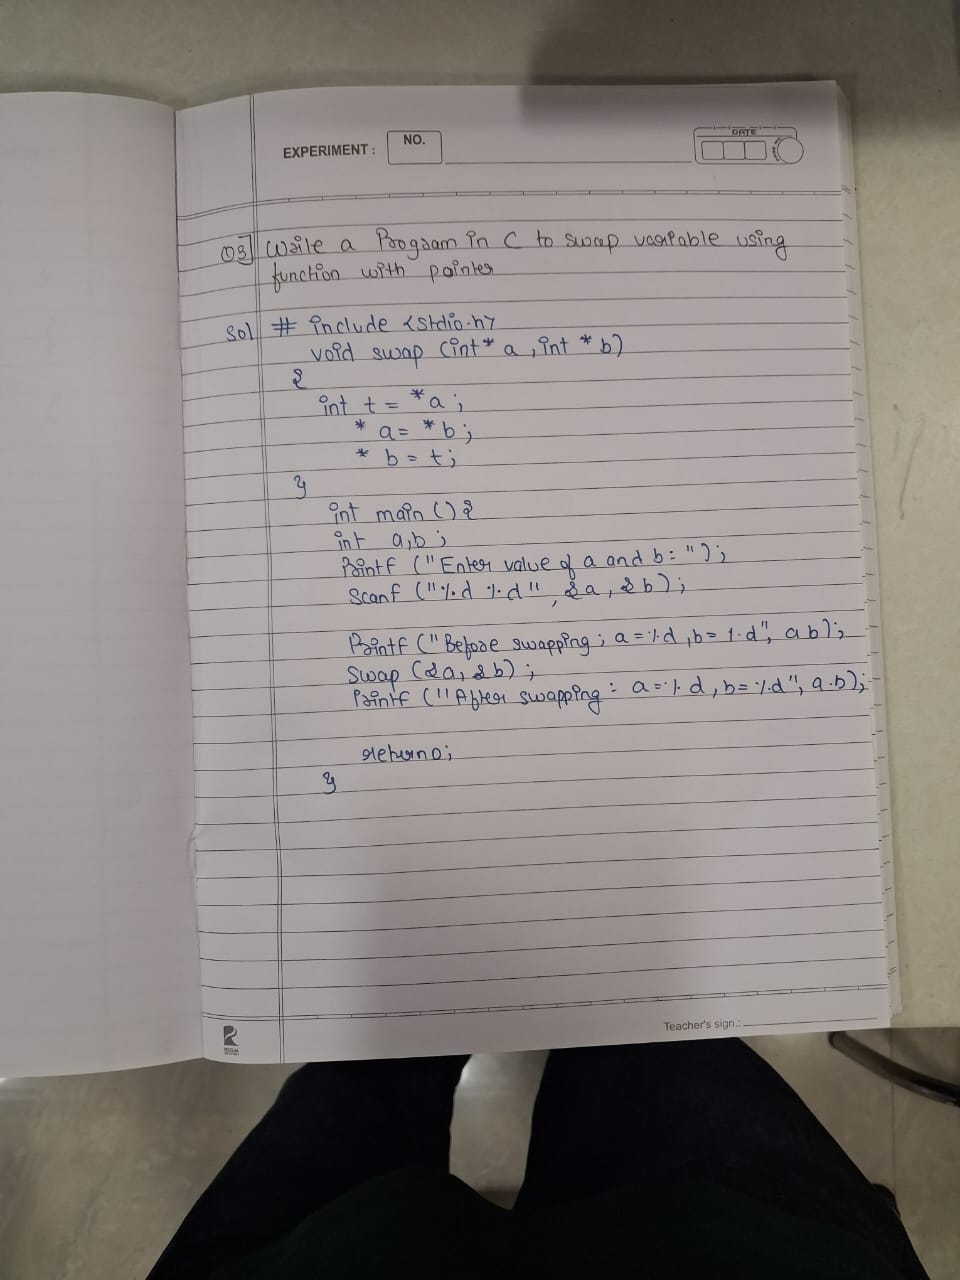 EXPERIMENT :
NO.
DATE
Q3] Write a Program in C to swap variable using
function with pointer
Sol # include <stdio.h>
void swap (int* a, int * b)
{
int t = *a ;
* a = * b ;
* b = t ;
}
int main () {
int a,b ;
Printf ("Enter value of a and b = ");
Scanf ("%d %d" , &a, &b);
Printf ("Before swapping ; a = %d , b = %d", a b);
Swap (&a, &b) ;
Printf ("After swapping : a = % d , b = %d", a.b);
return0;
}
Teacher's sign.: